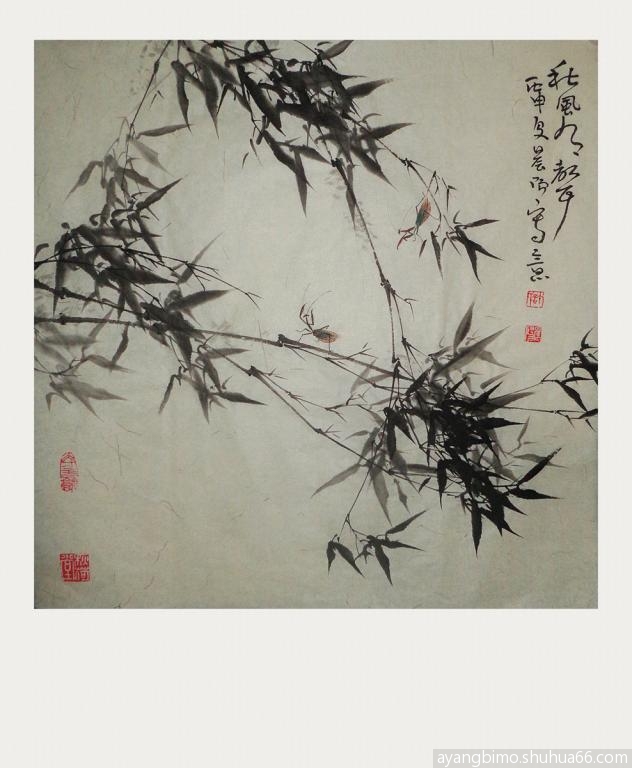 秋風有聲
丙申夏晨陽寫意
ayangbimo.shuhua66.com